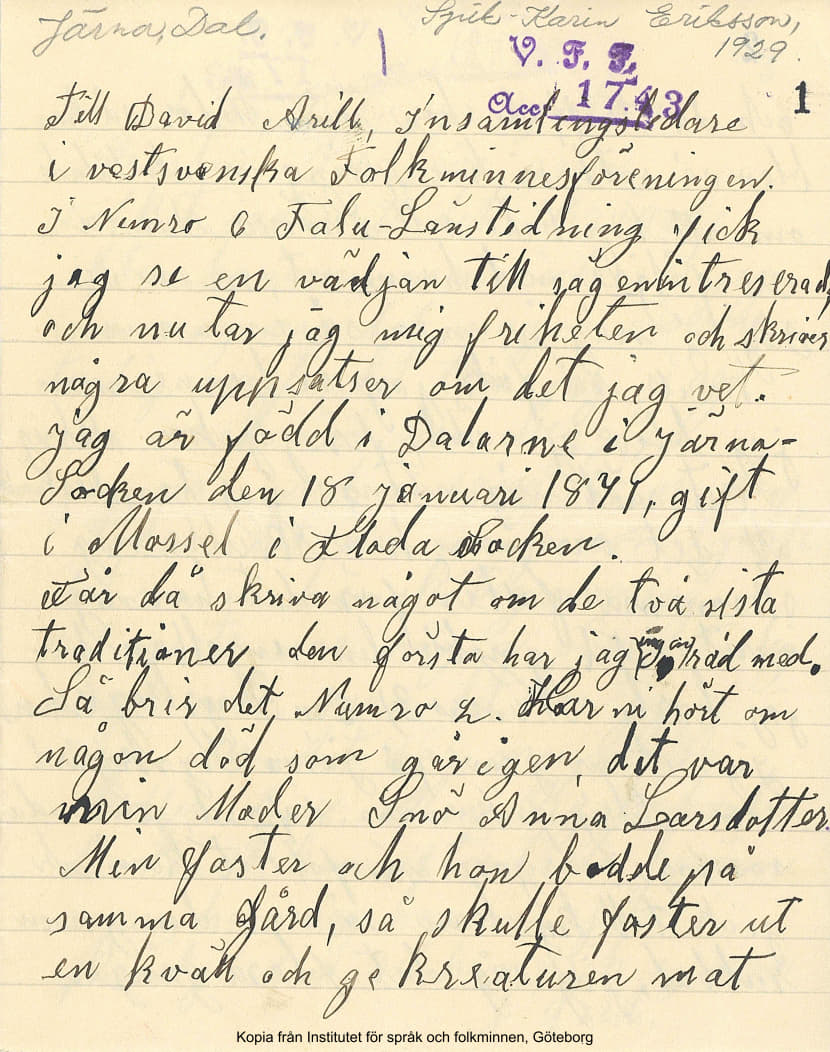 Järna, Dal.
Sjik-Karin Eriksson,
1929.
V. F. F.
Acc 1743
1
Till David Arill, Insamlingsledare
i vestsvenska Folkminnesföreningen.
I Numro 6 Falu-Länstidning fick
jag se en vädjan till sägenintreserad,
och nu tar jag mig friheten och skriver
några uppsatser om det jag vet.
Jag är född i Dalarne i Järna-
Socken den 18 januari 1871, gift
i Mossel i Floda Socken.
Får då skriva något om de två sista
traditioner den första har jag råd med.
Så brir det Numro 2. Har ni hört om
någon död som går igen, det var
min Moder Snö Anna Larsdotter.
Min faster och hon bodde på
samma Gård, så skulle faster ut
en kväll och ge kreaturen mat
Kopia från Institutet för språk och folkminnen, Göteborg